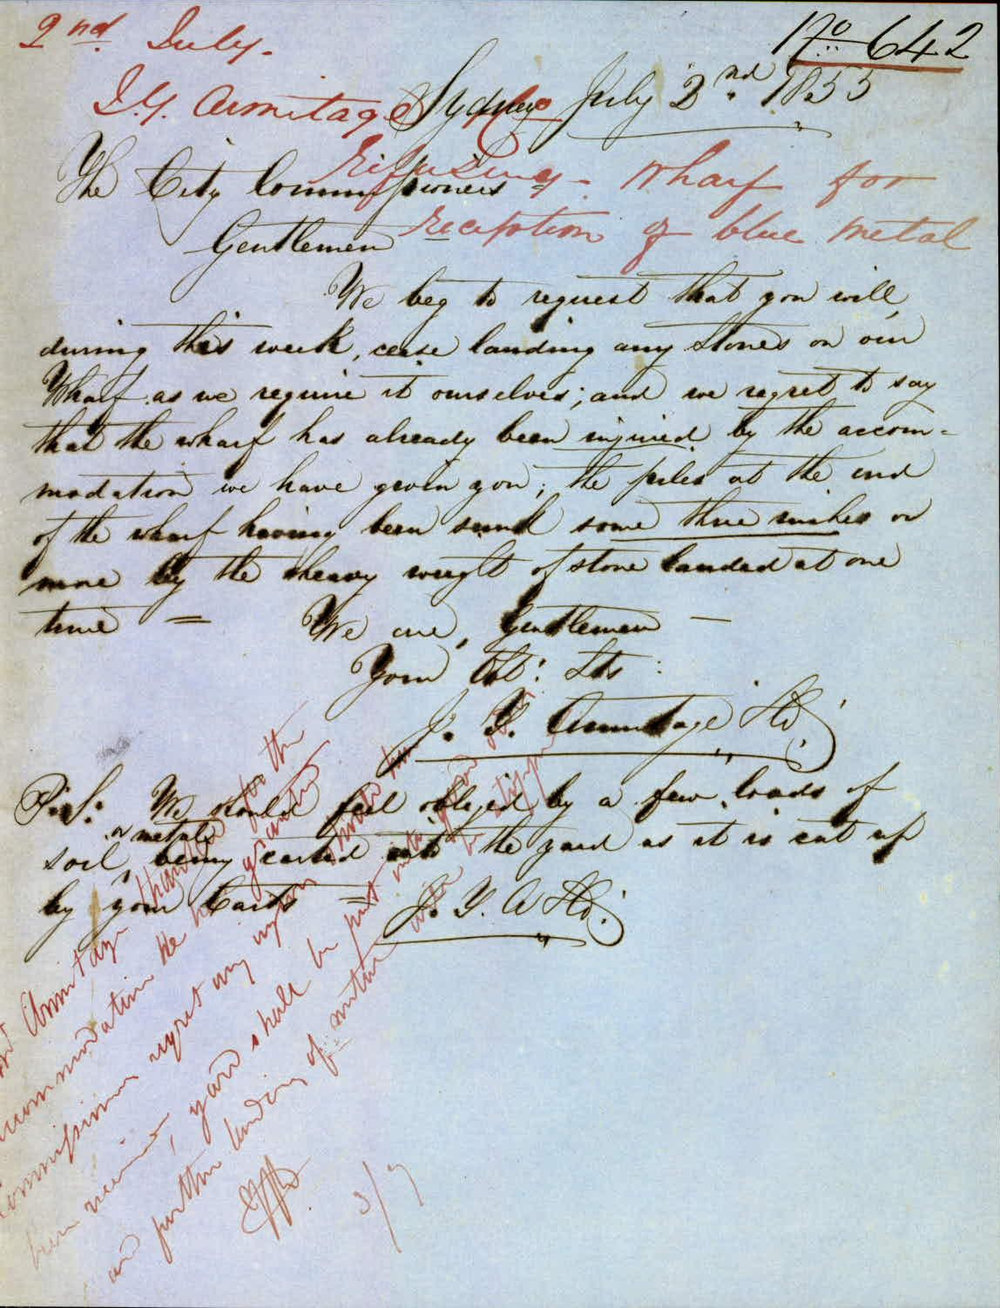 No 642
2nd July.
J. Y. Armitage & Co
Refusing - Wharf for
reception of blue metal
Sydney July 2nd 1855
The City Commissioners =
Gentlemen
We beg to request that you will,
during this week, cease landing any stones on our
Wharf as we require it ourselves; and we regret to say
that the wharf has already been injured by the accom=
modation we have given you; the piles at the end
of the wharf having been sunk some three inches or
more by the heavy weight of stone landed at one
time = We are, Gentlemen —
Your Obt: Sts:
J. Y. Armitage & Co:
P.S. We should feel obliged by a few loads of
or metal
soil, being carted into the yard as it is cut up
by your Carts = J. Y. A & Co:
Armitage thanked for the
accommodation he has granted
Commissioners regret any injury
been received, yard shall be put into
and further landing of metal to be stopped
3/7